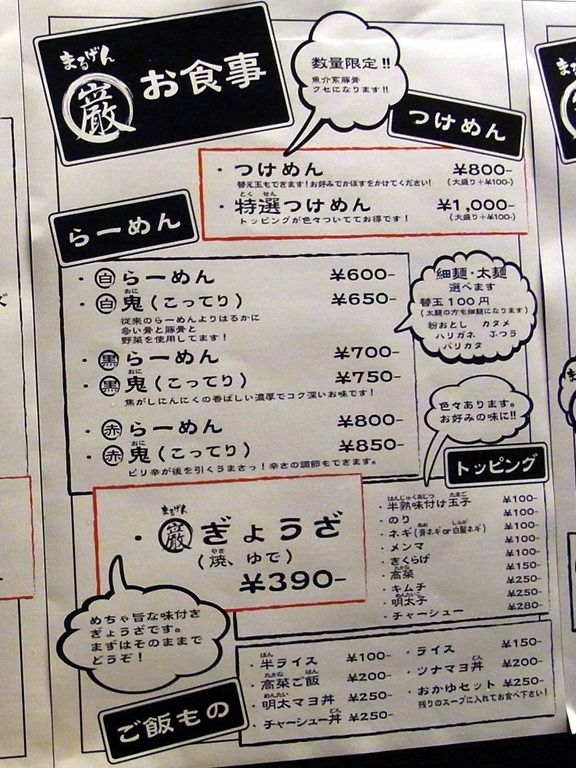 まるげん
巌
お食事
数量限定!!
魚介系豚骨
クセになります!!
つけめん
・つけめん ¥800-
替え玉もできます!お好みでかぼすをかけてください! (大盛り+¥100-)
とくせん
・特選つけめん ¥1,000-
トッピングが色々ついてお得です! (大盛り+¥100-)
らーめん
・白らーめん ¥600-
おに
・白鬼(こってり) ¥650-
従来のらーめんよりはるかに
多い骨と豚骨と
野菜を使用してます!
・黒らーめん ¥700-
おに
・黒鬼(こってり) ¥750-
焦がしにんにくの香ばしい濃厚でコク深いお味です!
・赤らーめん ¥800-
おに
・赤鬼(こってり) ¥850-
ピリ辛が後を引くうまさっ!辛さの調節もできます。
細麺・太麺
選べます
替玉100円
(太麺の方も細麺になります)
粉おとし カタメ
ハリガネ ふつう
バリカタ
色々あります。
お好みの味に!!
トッピング
はんじゅくあじつ たまご
・半熟味付け玉子 ¥100-
・のり ¥100-
あお しらが
・ネギ(青ネギor白髪ネギ) ¥100-
・メンマ ¥100-
・きくらげ ¥100-
たかな
・高菜 ¥150-
・キムチ ¥250-
めんたいこ
・明太子 ¥250-
・チャーシュー ¥280-
まるげん
・巌ぎょうざ
やき
(焼、ゆで)
¥390-
めちゃ旨な味付き
ぎょうざです。
まずはそのままで
どうぞ!
ご飯もの
はん
・半ライス ¥100-
たかな はん
・高菜ご飯 ¥200-
めんたい どん
・明太マヨ丼 ¥250-
どん
・チャーシュー丼 ¥250-
・ライス ¥150-
どん
・ツナマヨ丼 ¥200-
・おかゆセット ¥250-
残りのスープに入れてお食べ下さい!